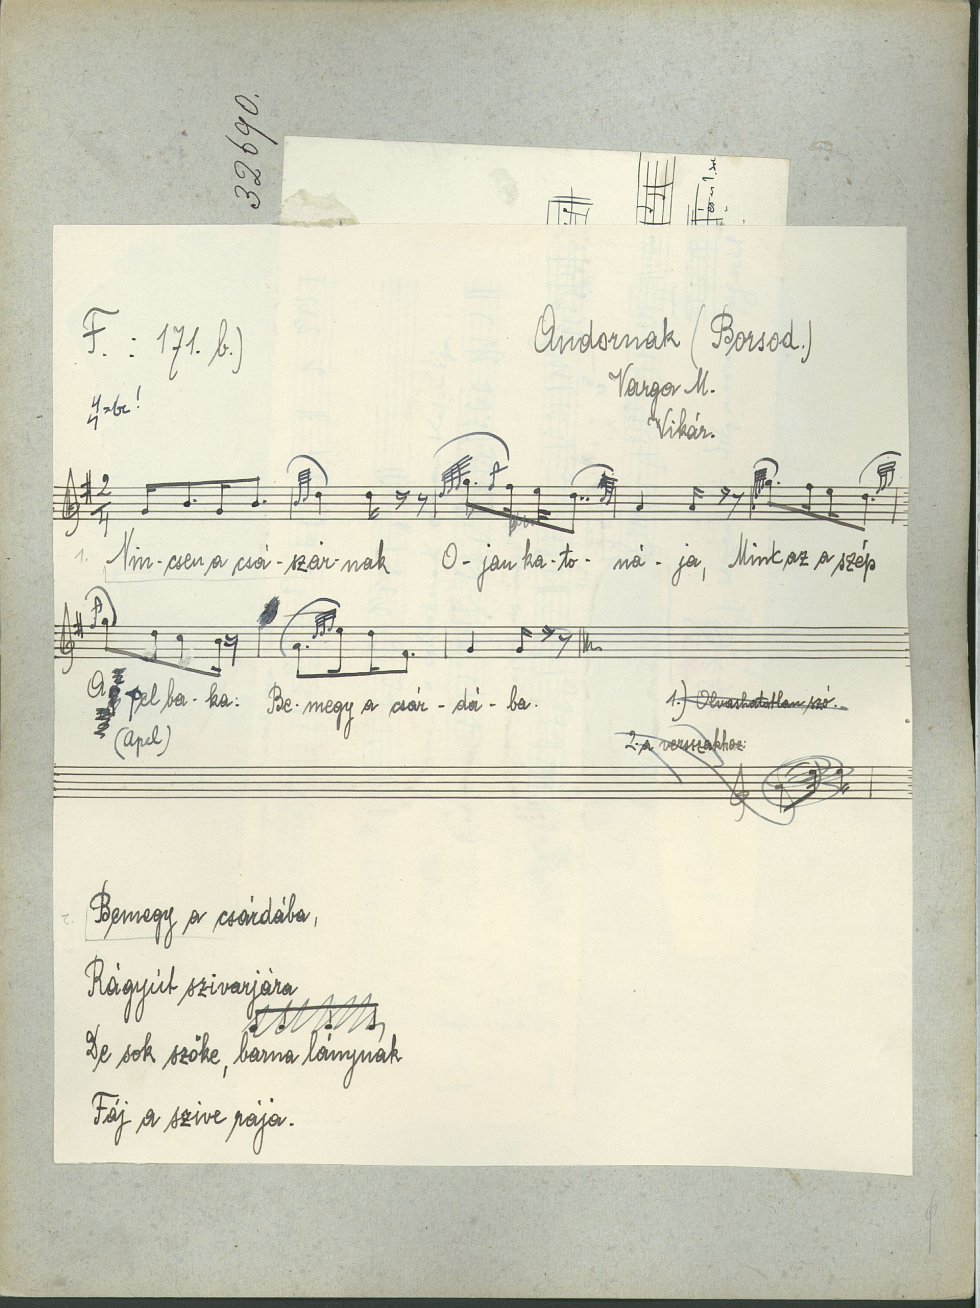 32690.
F. : 171. b.)
Andornak (Borsod.)
Varga M.
Vikár.
2
4
1. Nin-csen a csá-szár-nak O-jan ka-to-ná-ja, Mint az a szép
A pel ba-ka: Be-megy a csár-dá-ba.
(apel)
1.) Olvashatatlan szó.
2. a versszakhoz:
2. Bemegy a csárdába,
Rágyút szivarjára
De sok szőke, barna lánynak
Fáj a szive rája.